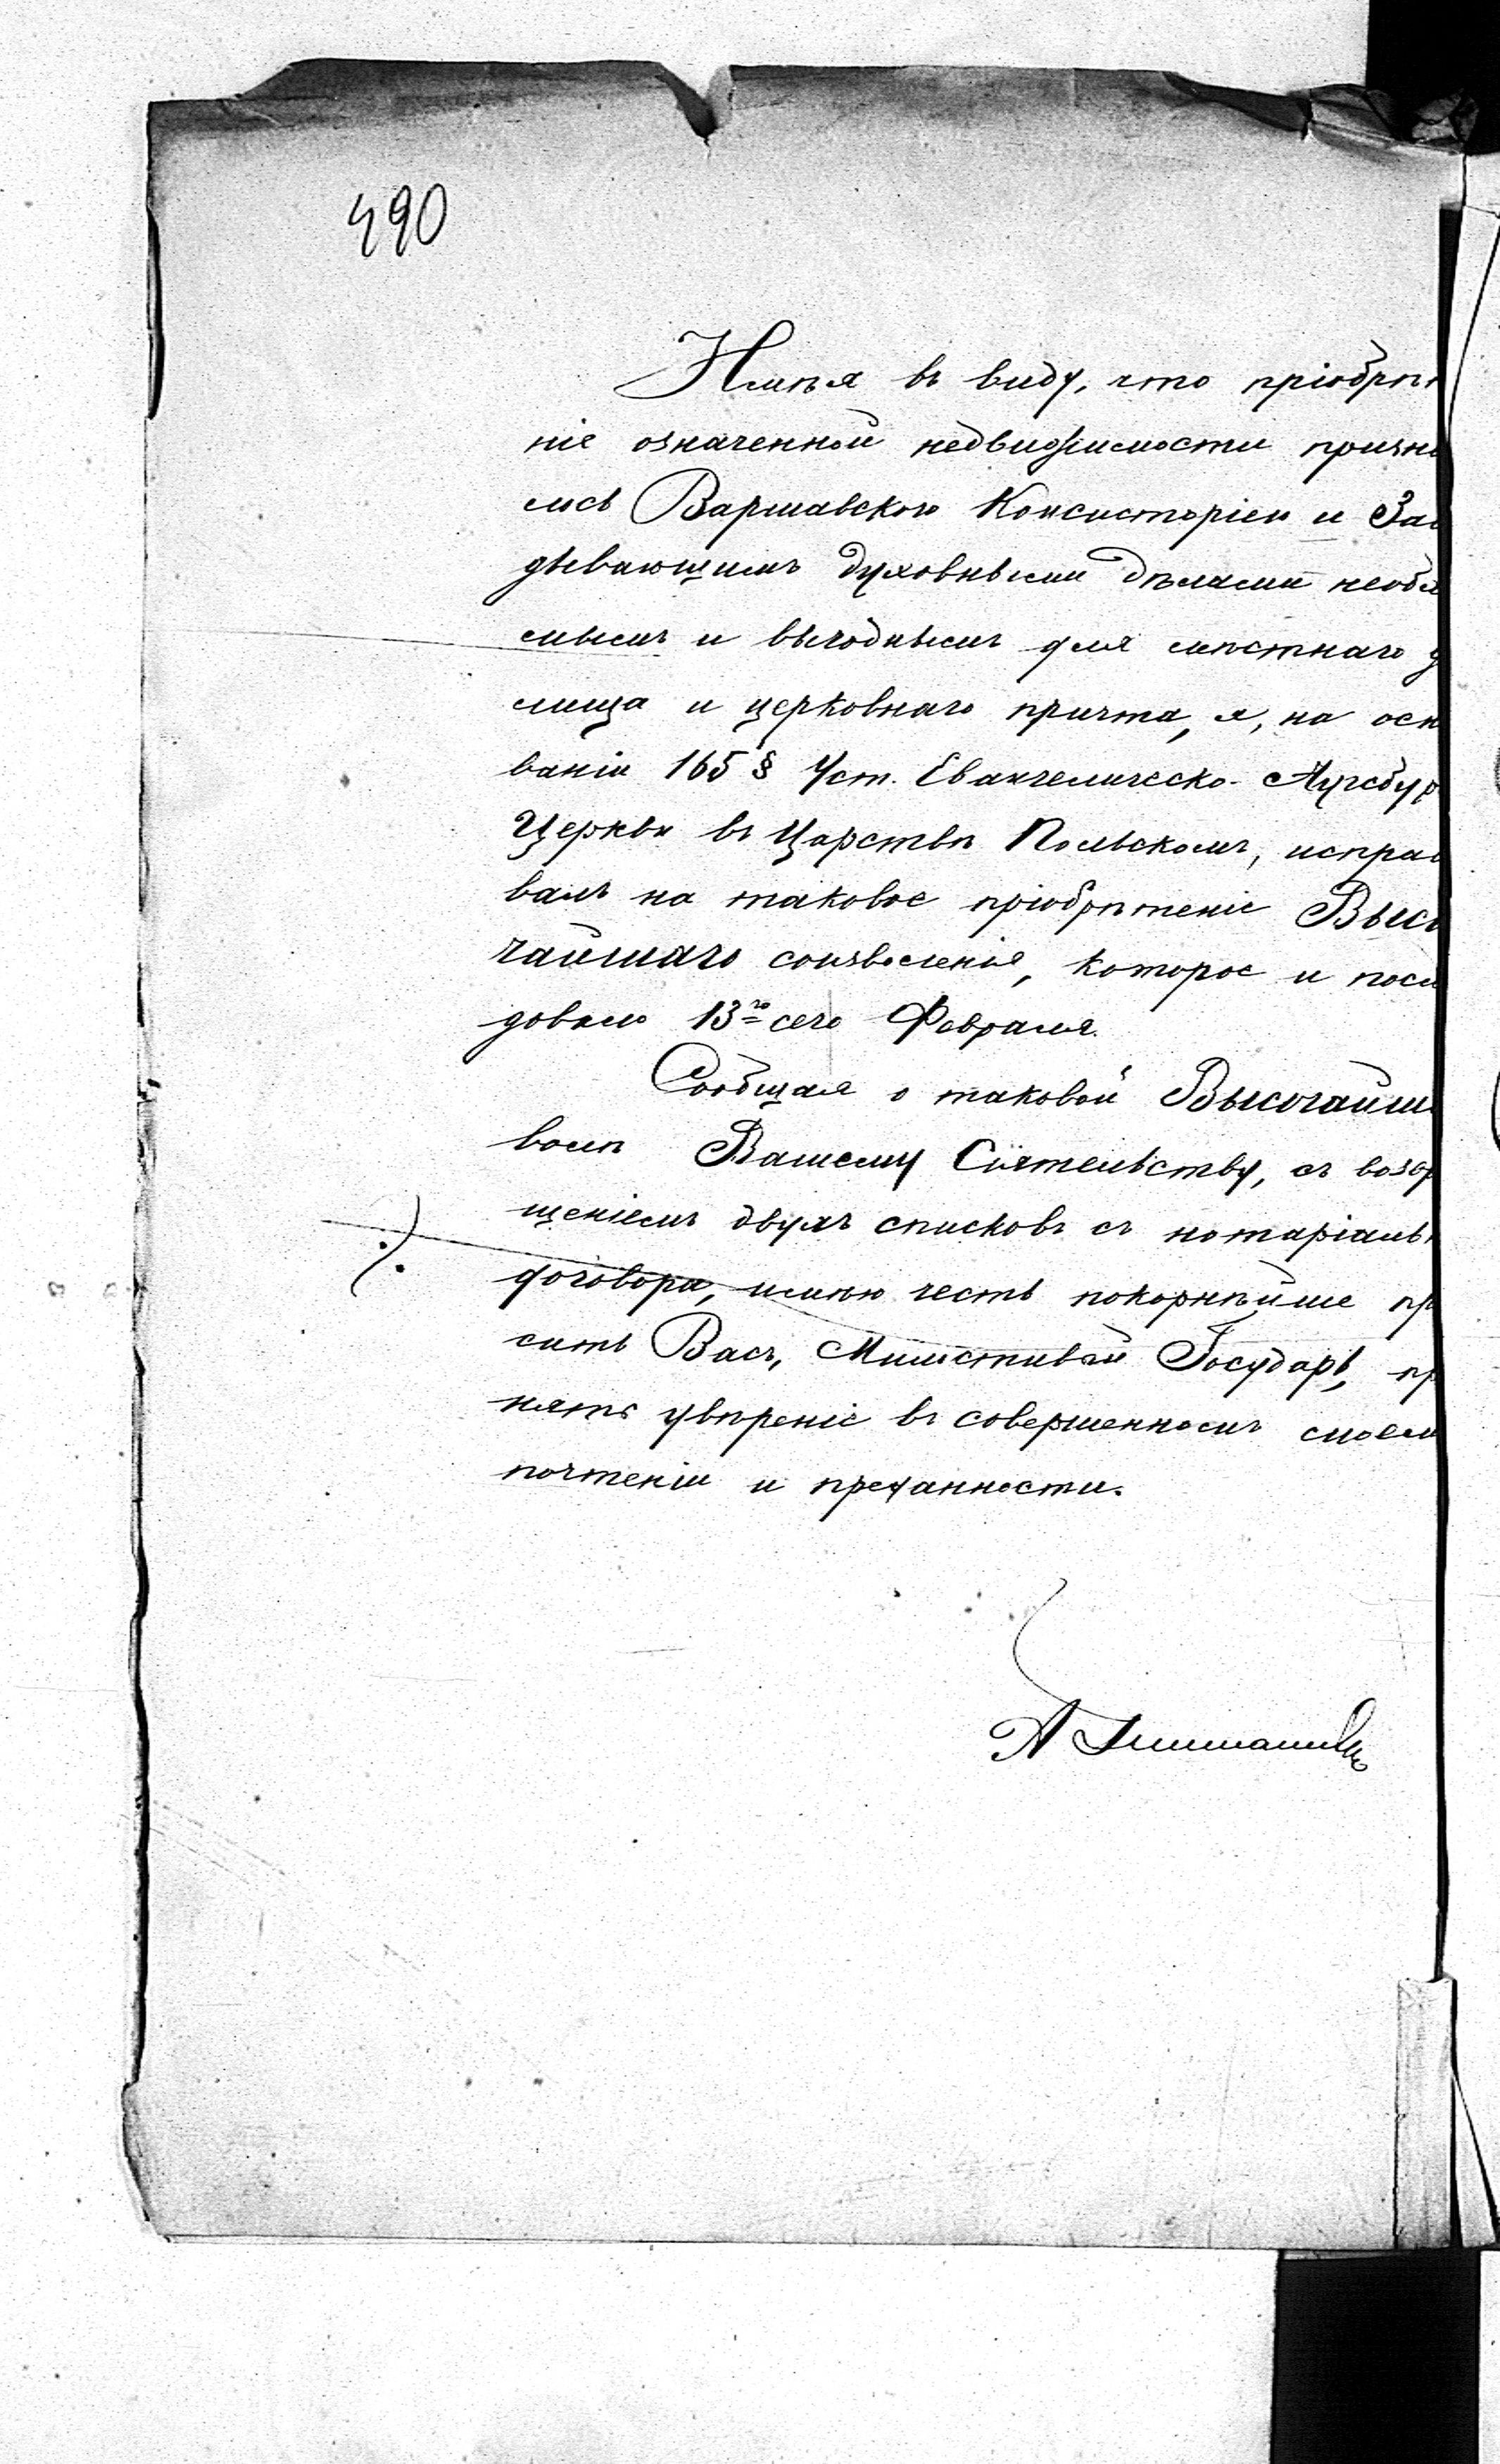 490
Имѣя въ виду, что пріобрѣт
ніе означенной недвижимости призна
лось Варшавскою Консисторіею и Зав
дывающимъ духовными дѣлами необх
мымъ и выгоднымъ для мѣстнаго у
лища и церковнаго причта, я, на осн
ваніи 165 § Уст. Евангелическо-Аугсбур
Церкви въ Царствѣ Польскомъ, испра
валъ на таковое пріобрѣтеніе Высо
чайшаго соизволенія, которое и посл
довало 13го сего Февраля.
Сообщая о таковой Высочайш
волѣ Вашему Сіятельству, съ возвр
щеніемъ двухъ списковъ съ нотаріальн
договора, имѣю честь покорнѣйше пр
сить Васъ, Милостивый Государь, пр
нять увѣреніе въ совершенномъ моем
почтеніи и преданности.